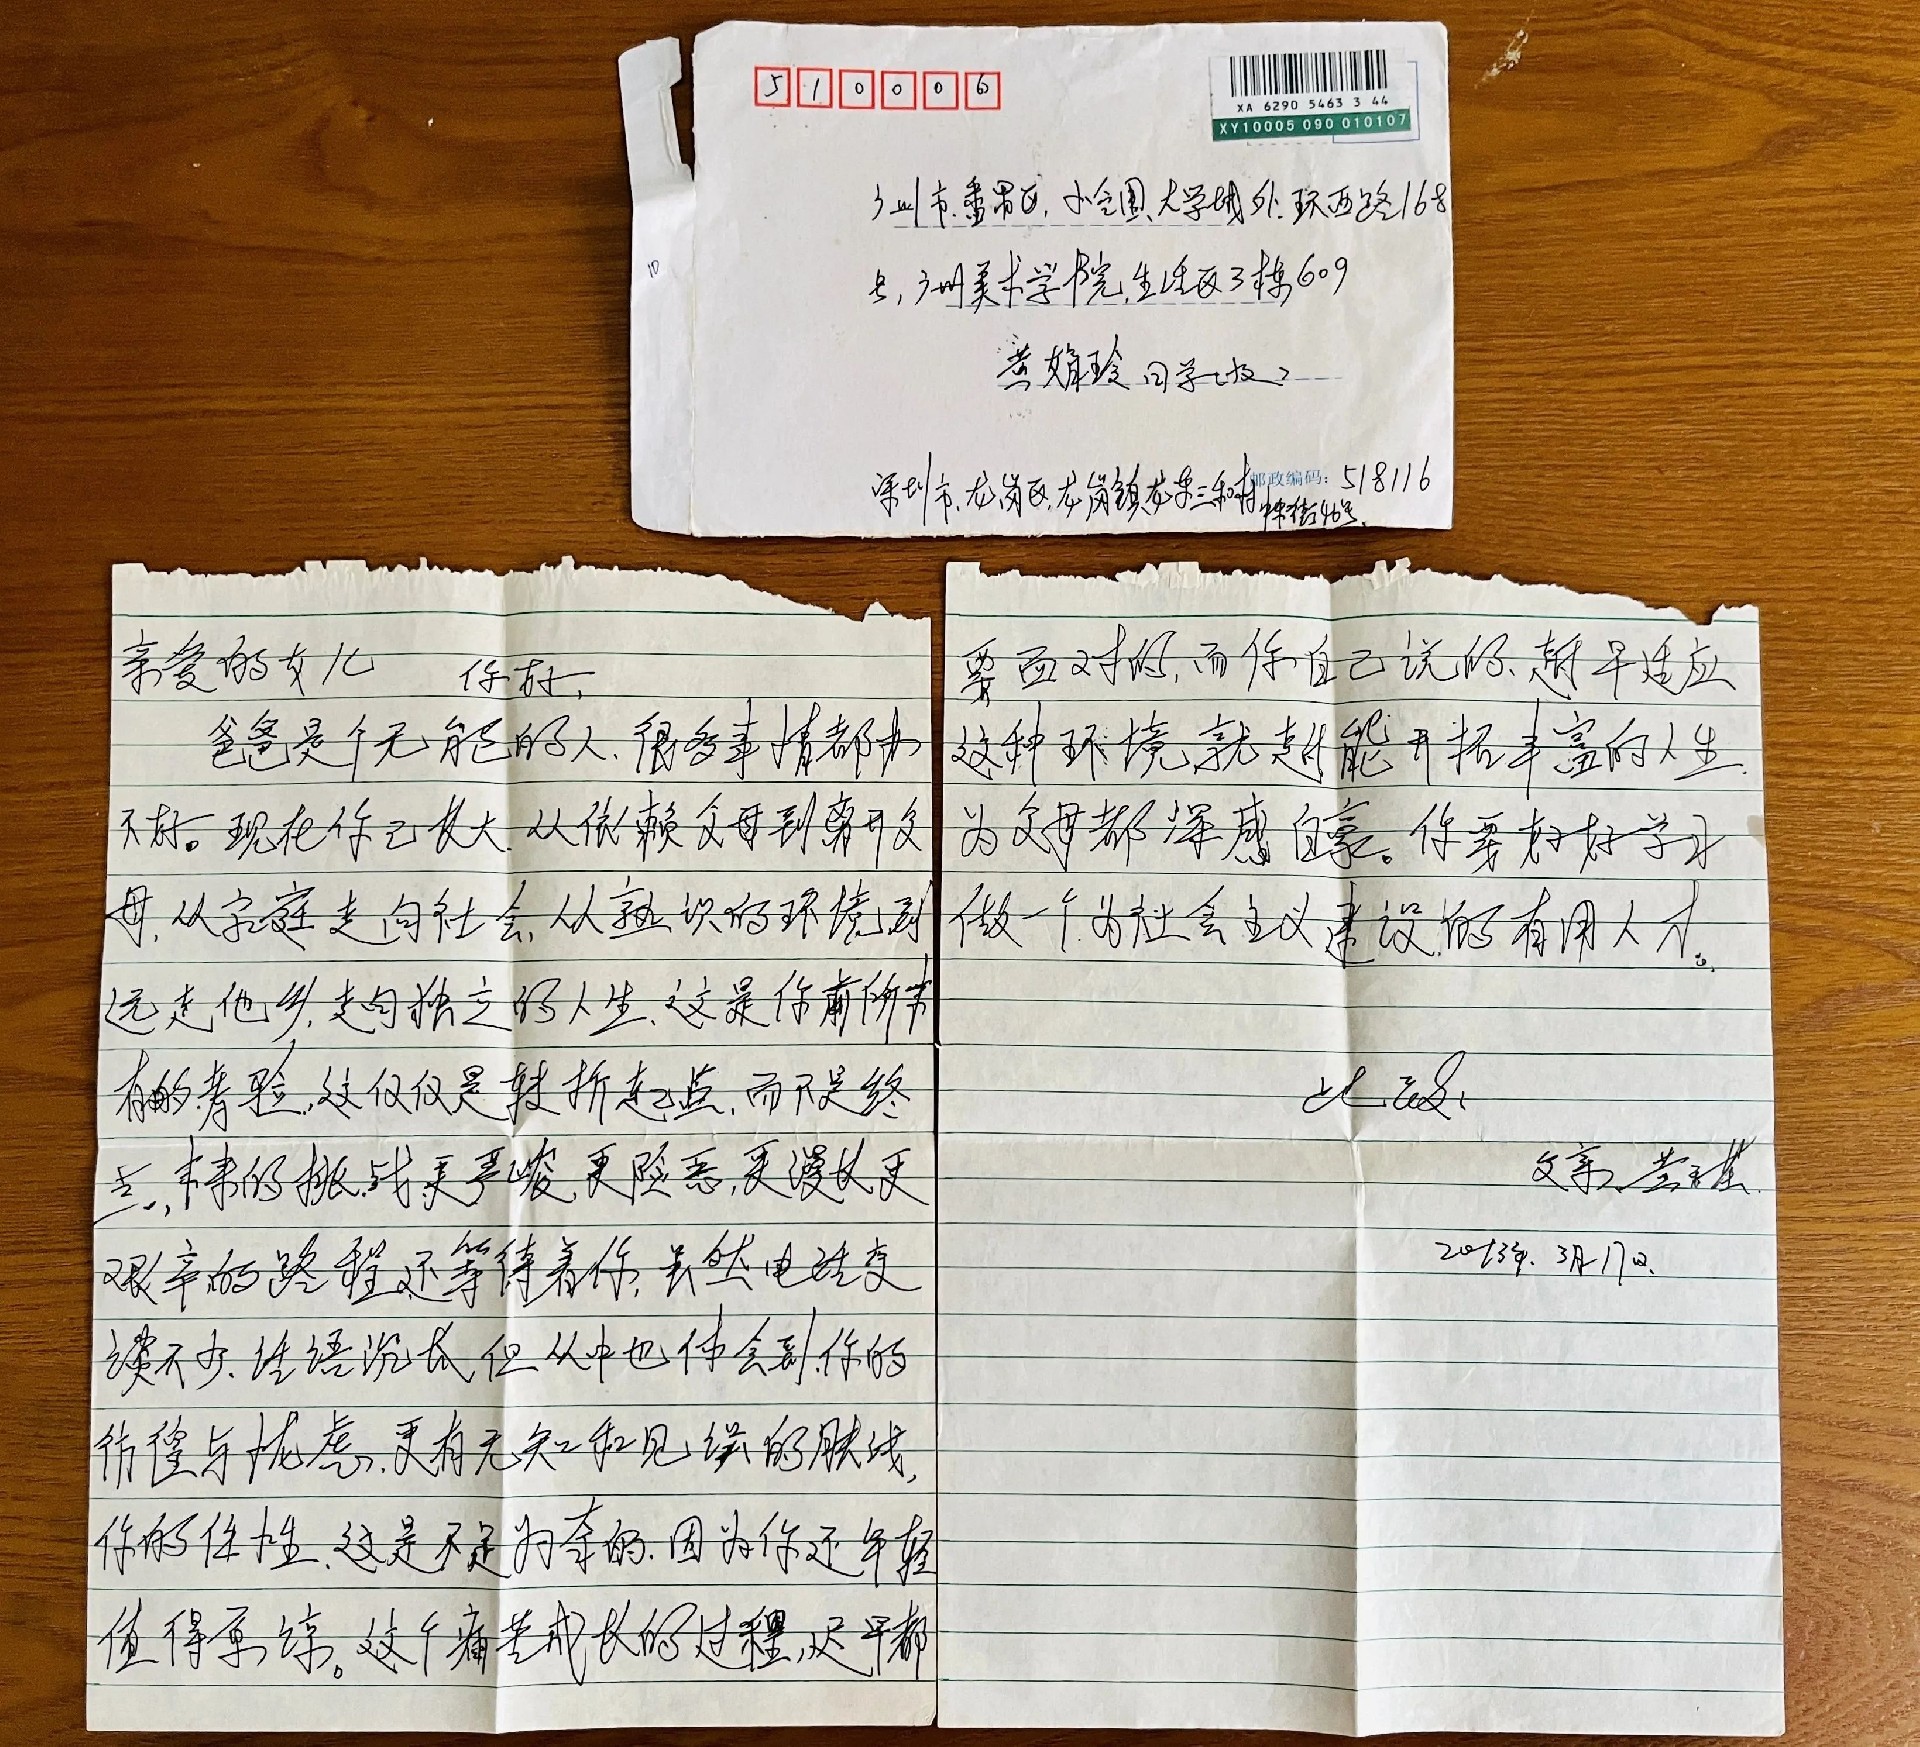 510006
XA 6290 5463 3 44
XY10005 090 010107
广州市.番禺区.小谷围.大学城外环西路168
号,广州美术学院.生活区3栋609
黄娟玲 同学收
邮政编码: 518116
深圳市.龙岗区.龙岗镇龙东三和村
街46号.
10
亲爱的女儿 你好,
爸爸是个无能的人.很多事情都办
不好。现在你已长大.从依赖父母到离开父
母,从家庭走向社会,从熟识的环境到
远走他乡,走向独立的人生.这是你前所未
有的考验,这仅仅是转折起点,而不是终
点,未来的挑战更严峻,更险恶,更漫长更
艰辛的路程还等待着你,虽然电话交
谈不少.话语沉长但从中也体会到你的
彷徨与忧虑.更有无知和见识的肤浅,
你的任性.这是不足为奇的.因为你还年轻
值得原谅。这个痛苦成长的过程,迟早都
要面对的,而你自己说的.越早适应
这种环境就越能开拓丰富的人生.
为父母都深感自豪。你要好好学习
做一个为社会主义建设的有用人才。
此致
父亲.黄
2013年.3月17日.